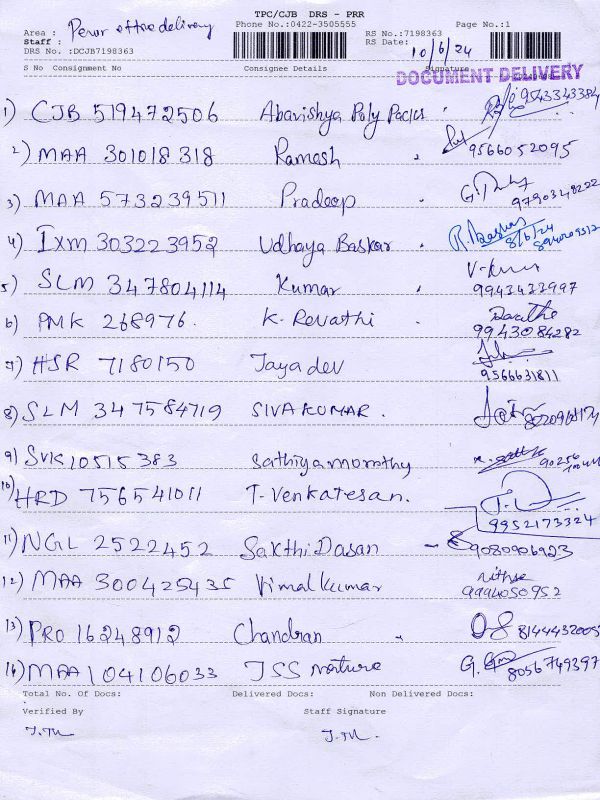 TPC/CJB DRS - PRR
Phone No.:0422-3505555 Page No.:1
Area : Perur office delivery
RS No.:7198363
Staff :
RS Date: 10/6/24
DRS No. :DCJB7198363
S No Consignment No Consignee Details Signature
DOCUMENT DELIVERY
1) CJB 519472506 Abavishya Poly Packs 9543343384
2) MAA 301018318 Ramesh 9566052095
3) MAA 573239511 Pradeep 9790348202
4) IXM 303223952 Udhaya Baskar R. Baskar 8/6/24
5) SLM 347804114 Kumar V-Kumar 9943433997
6) PMK 268976. K. Revathi Revathi 9943084282
7) HSR 7180150 Jayadev 9566631811
8) SLM 347584719 SIVAKUMAR.
9) SVK10515383 Sathiyamoorthy
10) HRD 756541011 T-Venkatesan. 9952173324
11) NGL 2522452 Sakthi Dasan 9080906923
12) MAA 300425435 Vimalkumar 9994050952
13) PRO 16248912 Chandran 8144432005
14) MAA 104106033 JSS nature 8056749397
Total No. Of Docs: Delivered Docs: Non Delivered Docs:
Verified By Staff Signature